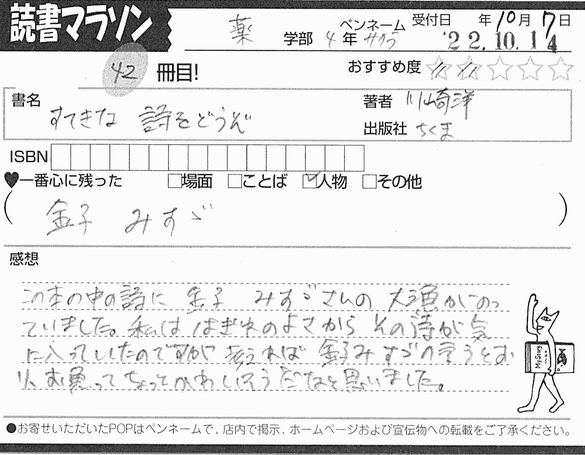 読書マラソン
薬 学部 4年 ペンネーム みかう 受付日 年10月7日
'22.10.14
42 冊目! おすすめ度 ☆☆☆☆☆
書名 すてきな 詩をどうぞ
著者 川崎洋
出版社 ちくま
ISBN
♥一番心に残った □場面 □ことば ☑人物 □その他
(金子 みすゞ)
感想
この本の中の詩に 金子 みすゞさんの 大漁がのっ
ていました。私は はぎれのよさから その詩が気
に入っていたのですが 考えれば 金子みすゞの言うとお
り、お魚ってちょっとかわいそうだなと思いました。
●お寄せいただいたPOPはペンネームで、店内で掲示、ホームページおよび宣伝物への転載をご了承ください。